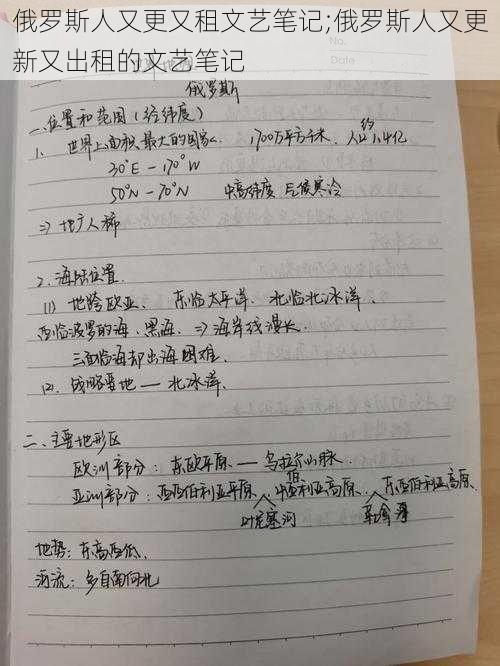 俄罗斯人又更又租文艺笔记;俄罗斯人又更
新又出租的文艺笔记
No.
俄罗斯
一、位置和范围(经纬度)
1、世界上面积最大的国家 1700万平方千米、人口约1.4亿
30°E—170°W
50°N—70°N 中高纬度、气候寒冷
⇒地广人稀
2、海陆位置.
(1) 地跨欧亚、东临太平洋、北临北冰洋.
西临波罗的海、黑海. ⇒海岸线漫长.
三面临海却出海困难.
(2). 战略要地—北冰洋.
二、主要地形区
欧洲部分:东欧平原—乌拉尔山脉.
亚洲部分:西西伯利亚平原、中西伯利亚高原、东西伯利亚高原
叶尼塞河 勒拿河
地势:东高西低.
河流:多自南向北